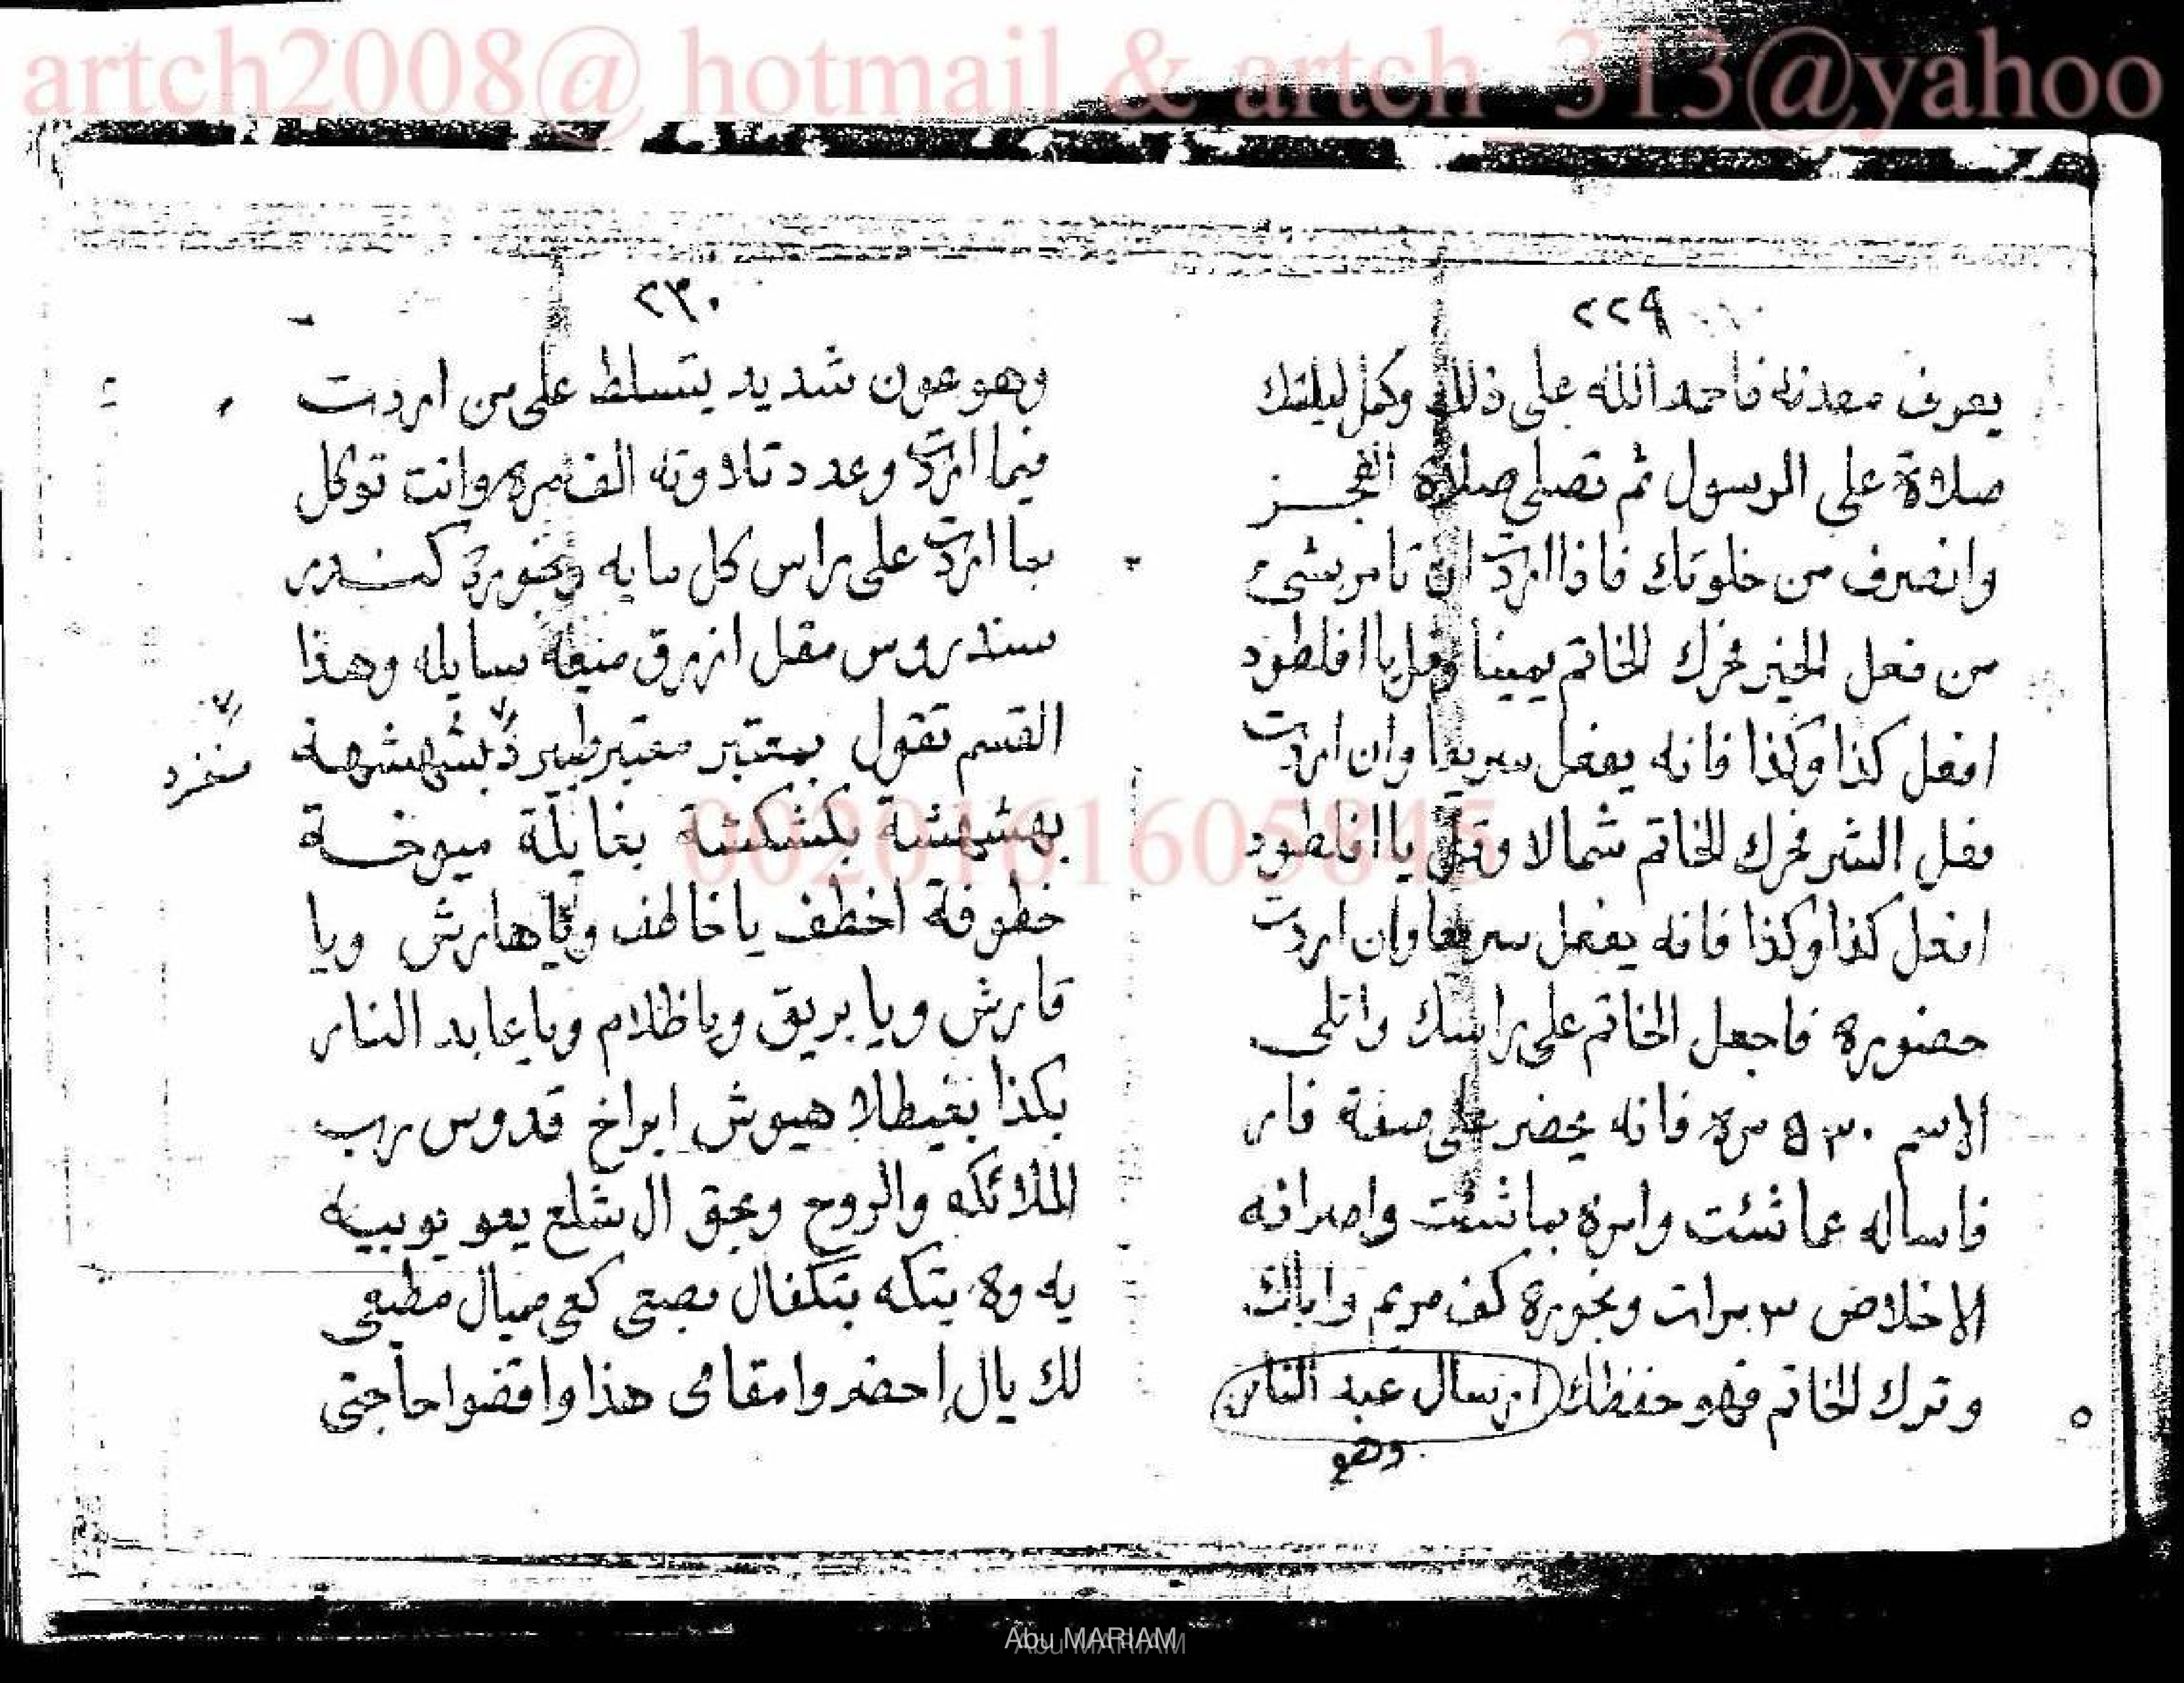 artch2008@ hotmail & artch_313@yahoo
٢٢٩
يعرف معدنه فاحمد الله على ذلك وكمل ليلتك
صلاة على الرسول ثم تصلى صلاة الفجر
وانصرف من خلوتك فاذا اردت ان تامر بشئ
من فعل الخير فحرك الخاتم يمينا وقل يا افلطود
افعل كذا وكذا فانه يفعل سريعا وان اردت
فعل الشر فحرك الخاتم شمالا وقل يا افلطود
افعل كذا وكذا فانه يفعل سريعا وان اردت
حضوره فاجعل الخاتم على راسك واتلى
الاسم ٥٣٠ مرة فانه يحضر على صفة فار
فاساله عما شئت وامره بما شئت واصرافه
الاخلاص ٣ مرات وبخوره كف مريم واياك
وترك الخاتم فهو حفظك ارسال عبد النار
وهو
٢٣٠
وهو عون شديد يتسلط على من اردت
فيما اردت وعدد تلاوته الف مره وانت توكل
بما اردت على راس كل مايه وبخورة كندر
سندروس مقل ازرق ميعة سايله وهذا
القسم تقول بمعتبر معتبر طيبرد بشهشهة
بهشهشة بكشكشة بغايلة ميوخة
خطوفة اخطف يا خاطف ويا هارش ويا
قارش ويا بريق ويا ظلام ويا عابد النار
بكذا بغيطلا هيوش ابراخ قدوس رب
الملائكه والروح وبحق ال شلع يعو يوبيه
يه وه بتكه بتكفال بصعى كعى ميال مطيعى
لك يال احضروا مقامى هذا واقضوا حاجتى
0020161605845
Abu MARIAM